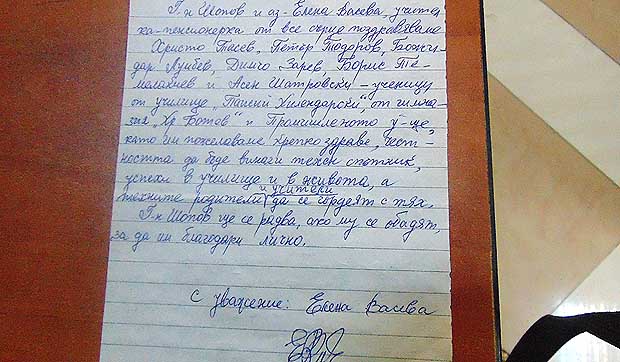 Г-н Шопов и аз - Елена Васева, учител-
ка-пенсионерка от все сърце поздравяваме
Христо Тасев, Петър Тодоров, Божи-
дар Лумбев, Димчо Зарев, Борис Те-
молакиев и Асен Шатровски - ученици
от училище „Паисий Хилендарски", от гимна-
зия „Хр. Ботев" и Промишленото у-ще,
като им пожелаваме крепко здраве, чест-
ността да бъде винаги техен спътник,
успехи в училище и в живота, а
и учители
техните родители да се гордеят с тях.
Г-н Шопов ще се радва, ако му се обадят,
за да им благодари лично.
С уважение: Елена Васева